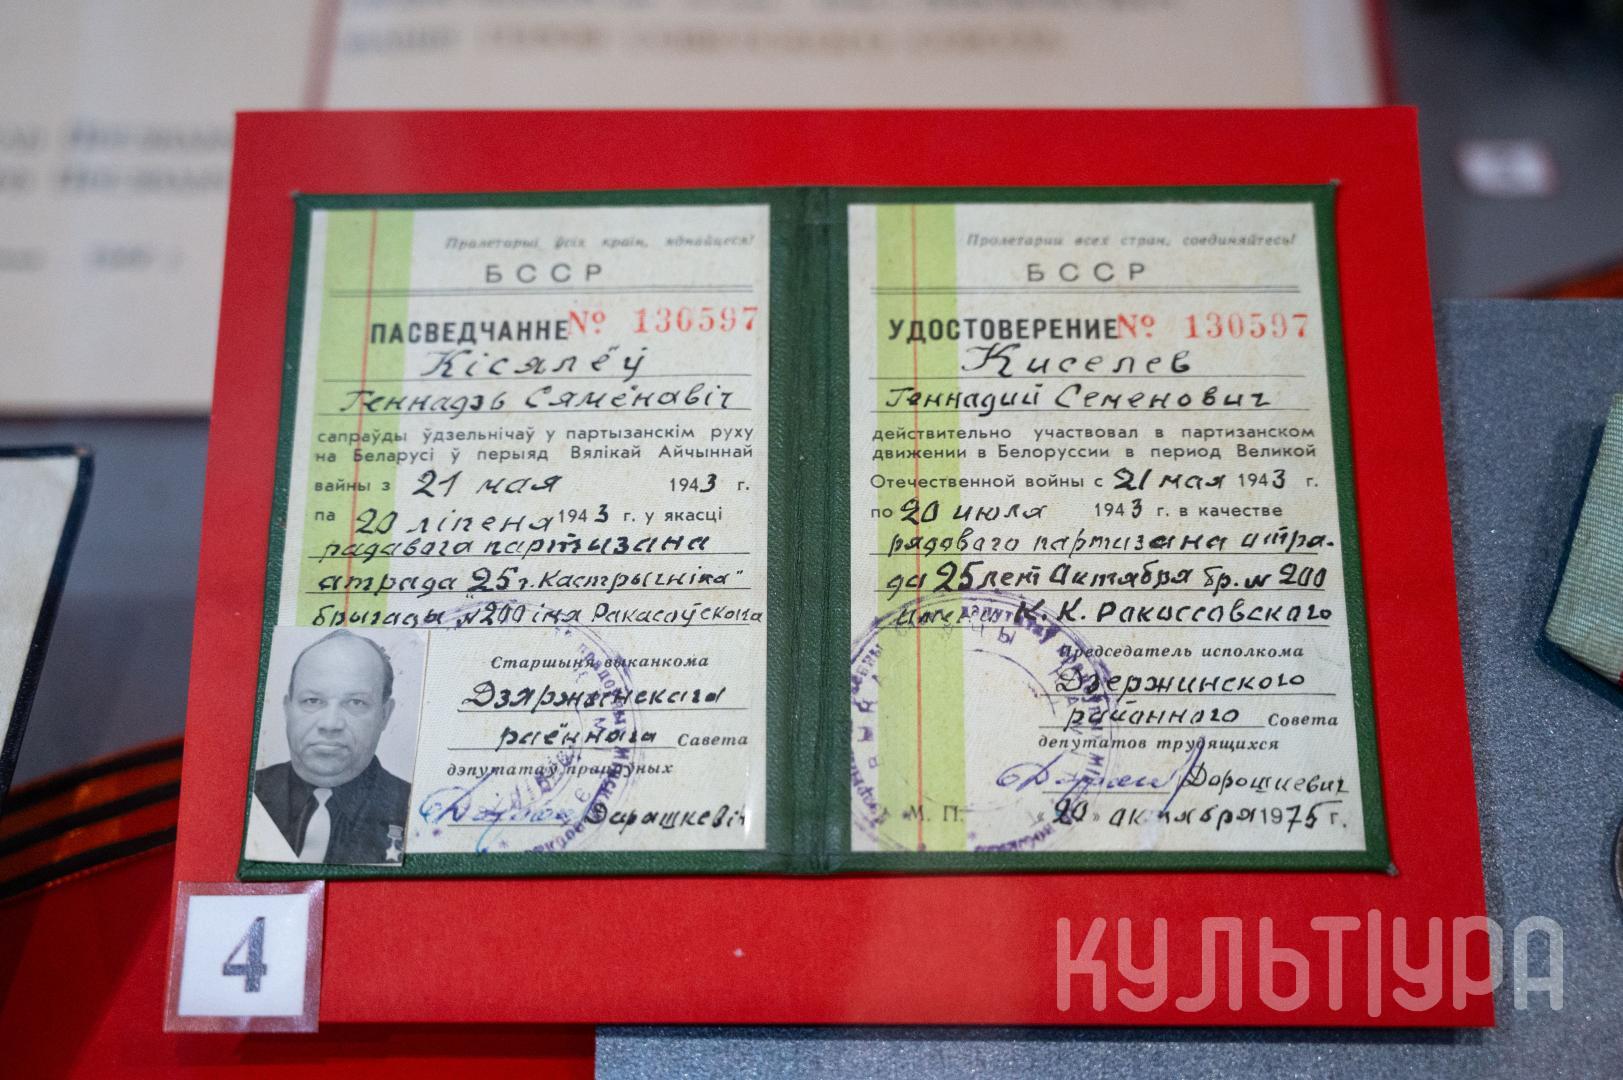 Пролетарыі ўсіх краін, яднайцеся!
БССР
ПАСВЕДЧАННЕ № 130597
Кісялёў
Геннадзь Сямёнавіч
сапраўды ўдзельнічаў у партызанскім руху
на Беларусі ў перыяд Вялікай Айчыннай
вайны з 21 мая 1943 г.
па 20 ліпеня 1943 г. у якасці
радавога партизана
атрада "25 г. Кастрычніка"
брыгады №200 імя Ракасаўскага
Старшыня выканкома
Дзяржынскага
раённага Савета
дэпутатаў працоўных
Дарашкевіч
Пролетарии всех стран, соединяйтесь!
БССР
УДОСТОВЕРЕНИЕ № 130597
Киселев
Геннадий Семенович
действительно участвовал в партизанском
движении в Белоруссии в период Великой
Отечественной войны с 21 мая 1943 г.
по 20 июля 1943 г. в качестве
рядового партизана отря-
да 25 лет Октября бр. №200
имени К. К. Ракоссавского
Председатель исполкома
Дзержинского
районного Совета
депутатов трудящихся
Дорошкевич
М. П. «20» октября 1975 г.
4
КУЛЬТУРА